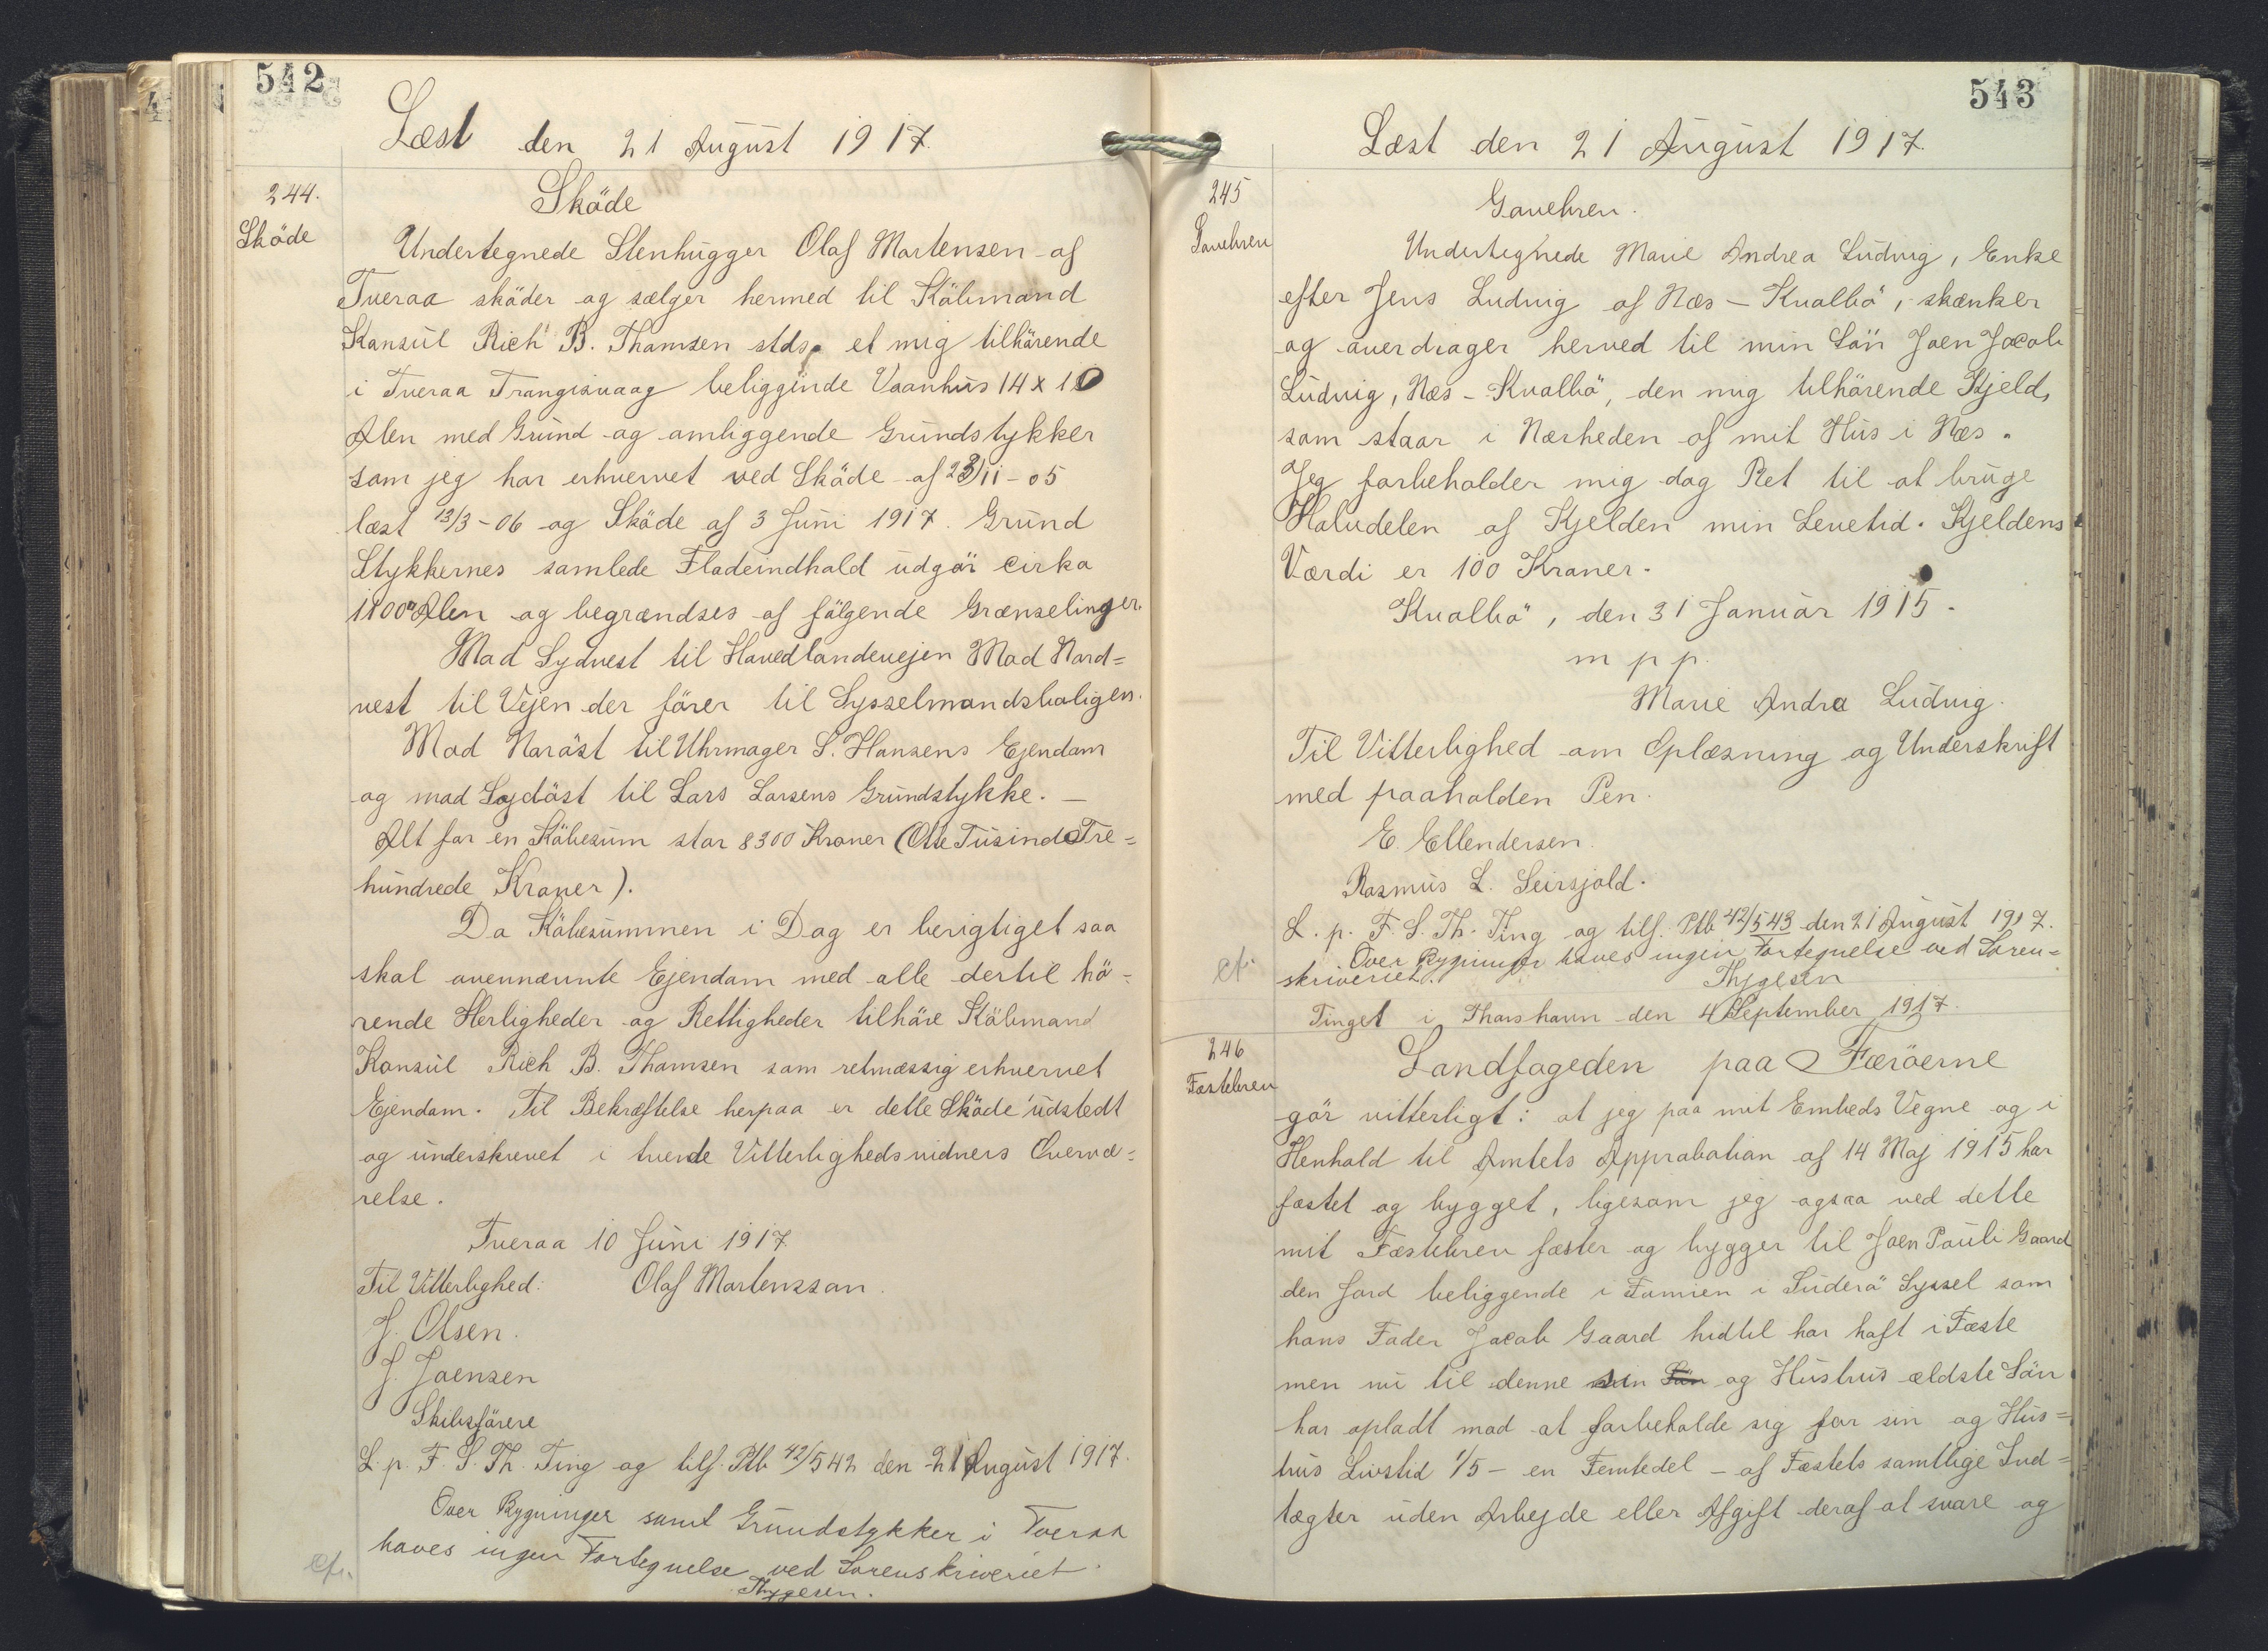 542
Læst den 21 August 1917.
244.
Skøde
Skøde
Undertegnede Stenhugger Olaf Martensen af
Tveraa skøder og sælger hermed til Købmand
Konsul Rich B. Thomsen stds. et mig tilhørende
i Tveraa Trangisvaag beliggende Vaanhus 14 x 10
Alen med Grund og omliggende Grundstykker
som jeg har erhvervet ved Skøde af 23/11-05
læst 13/3-06 og Skøde af 3 Juni 1917. Grund
Stykkernes samlede Fladeindhold udgør cirka
1800 □ Alen og begrændses af følgende Grænselinjer.
Mod Sydvest til Hovedlandevejen Mod Nord=
vest til Vejen der fører til Sysselmandsboligen.
Mod Norøst til Uhrmager S. Hansens Ejendom
og mod Sydøst til Lars Larsens Grundstykke. —
Alt for en Købesum stor 8300 Kroner (Otte Tusinde Tre=
hundrede Kroner).
Da Købesummen i Dag er berigtiget saa
skal ovennævnte Ejendom med alle dertil hø=
rende Herligheder og Rettigheder tilhøre Købmand
Konsul Rich B. Thomsen som retmæssig erhvervet
Ejendom. Til Bekræftelse herpaa er dette Skøde udstedt
og underskrevet i tvende Vitterlighedsvidners Overvæ=
relse.
Tveraa 10 Juni 1917.
Til Vitterlighed: Olaf Martensson.
J. Olsen.
J. Joensen
Skibsførere
L. p. F. S. Th. Ting og tilf. Ptb 42/542 den 21 August 1917.
Over Bygninger samt Grundstykker i Tveraa
haves ingen Fortegnelse ved Sorenskriveriet.
cfr.
Thygesen.
543
Læst den 21 August 1917.
245
Gavebrev
Gavebrev.
Undertegnede Marie Andrea Ludvig, Enke
efter Jens Ludvig af Næs - Kvalbø, skænker
og overdrager herved til min Søn Joen Jacob
Ludvig, Næs - Kvalbø, den mig tilhørende Kjeld,
som staar i Nærheden af mit Hus i Næs.
Jeg forbeholder mig dog Ret til at bruge
Halvdelen af Kjelden min Levetid. Kjeldens
Værdi er 100 Kroner.
Kvalbø, den 31 Januar 1915.
m p p.
Marie Andrea Ludvig.
Til Vitterlighed om Oplæsning og Underskrift
med paaholden Pen.
E. Ellendersen.
Rasmus L. Seirsjold.
L. p. F. S. Th. Ting og tilf. Ptb 42/543 den 21 August 1917.
Over Bygningen haves ingen Fortegnelse ved Soren=
cfr.
skriveriet.
Thygesen
Tinget i Thorshavn den 4 September 1917.
246
Fæstebrev
Landfogeden paa Færøerne
gør vitterligt: at jeg paa mit Embeds Vegne og i
Henhold til Amtets Approbation af 14 Maj 1915 har
fæstet og bygget, ligesom jeg ogsaa ved dette
mit Fæstebrev fæster og bygger til Joen Pauli Gaard
den Jord beliggende i Famien i Suderø Syssel som
hans Fader Jacob Gaard hidtil har haft i Fæste
men nu til denne sin Søn og Hustrus ældste Søn
har opladt mod at forbeholde sig for sin og Hus=
trus Livstid 1/5 - en Femtedel - af Fæstets samtlige Ind=
tægter uden Arbejde eller Afgift deraf at svare og